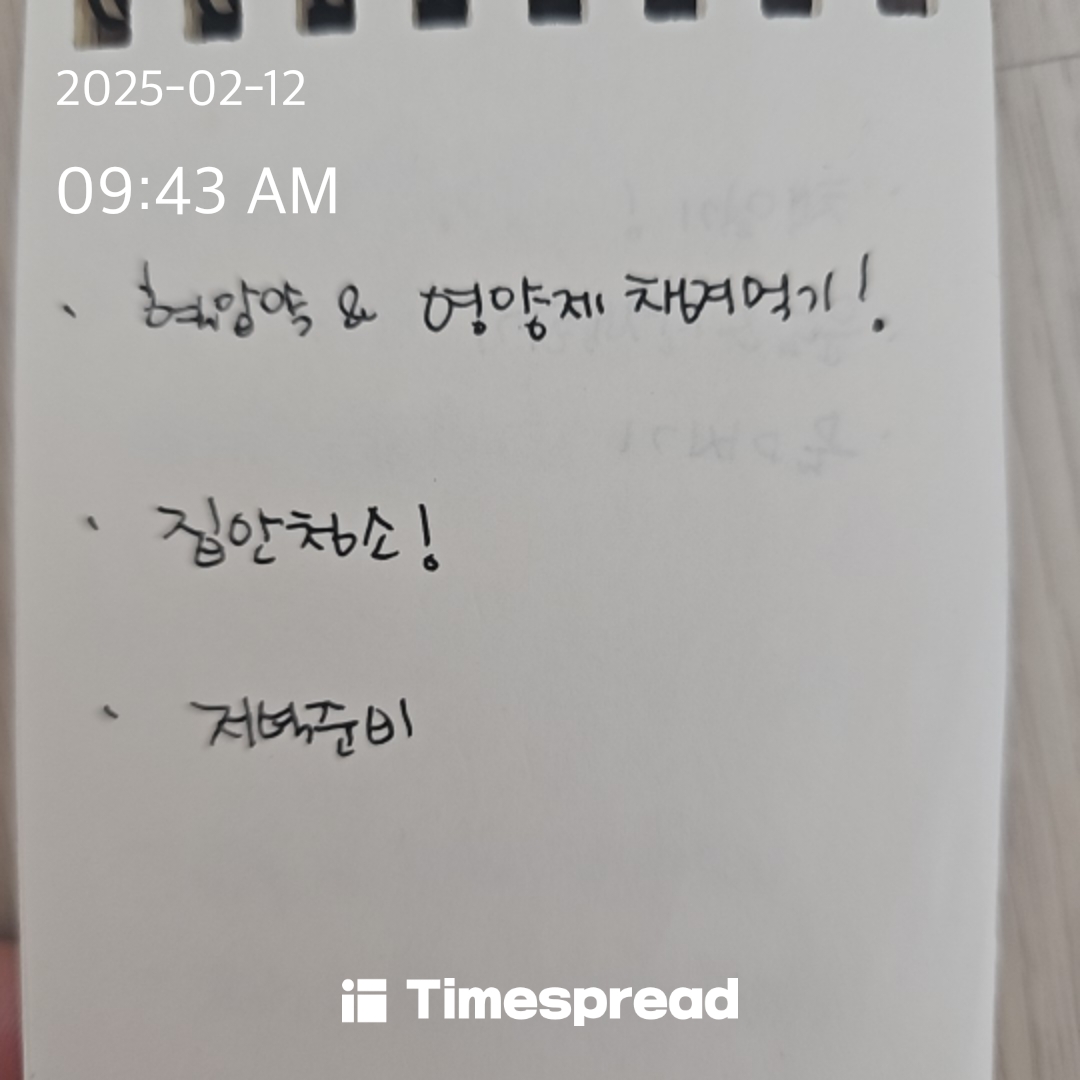 2025-02-12
09:43 AM
· 혈압약 & 영양제 챙겨먹기!
· 집안청소!
· 저녁준비
Timespread